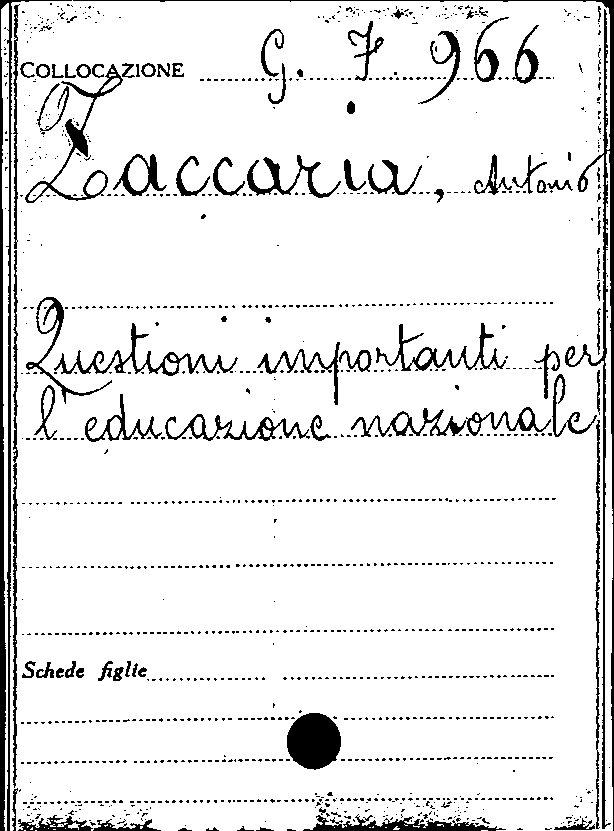 COLLOCAZIONE G. 7. 966
Zaccaria, Antonio
Questioni importanti per
l'educazione nazionale
Schede figlie